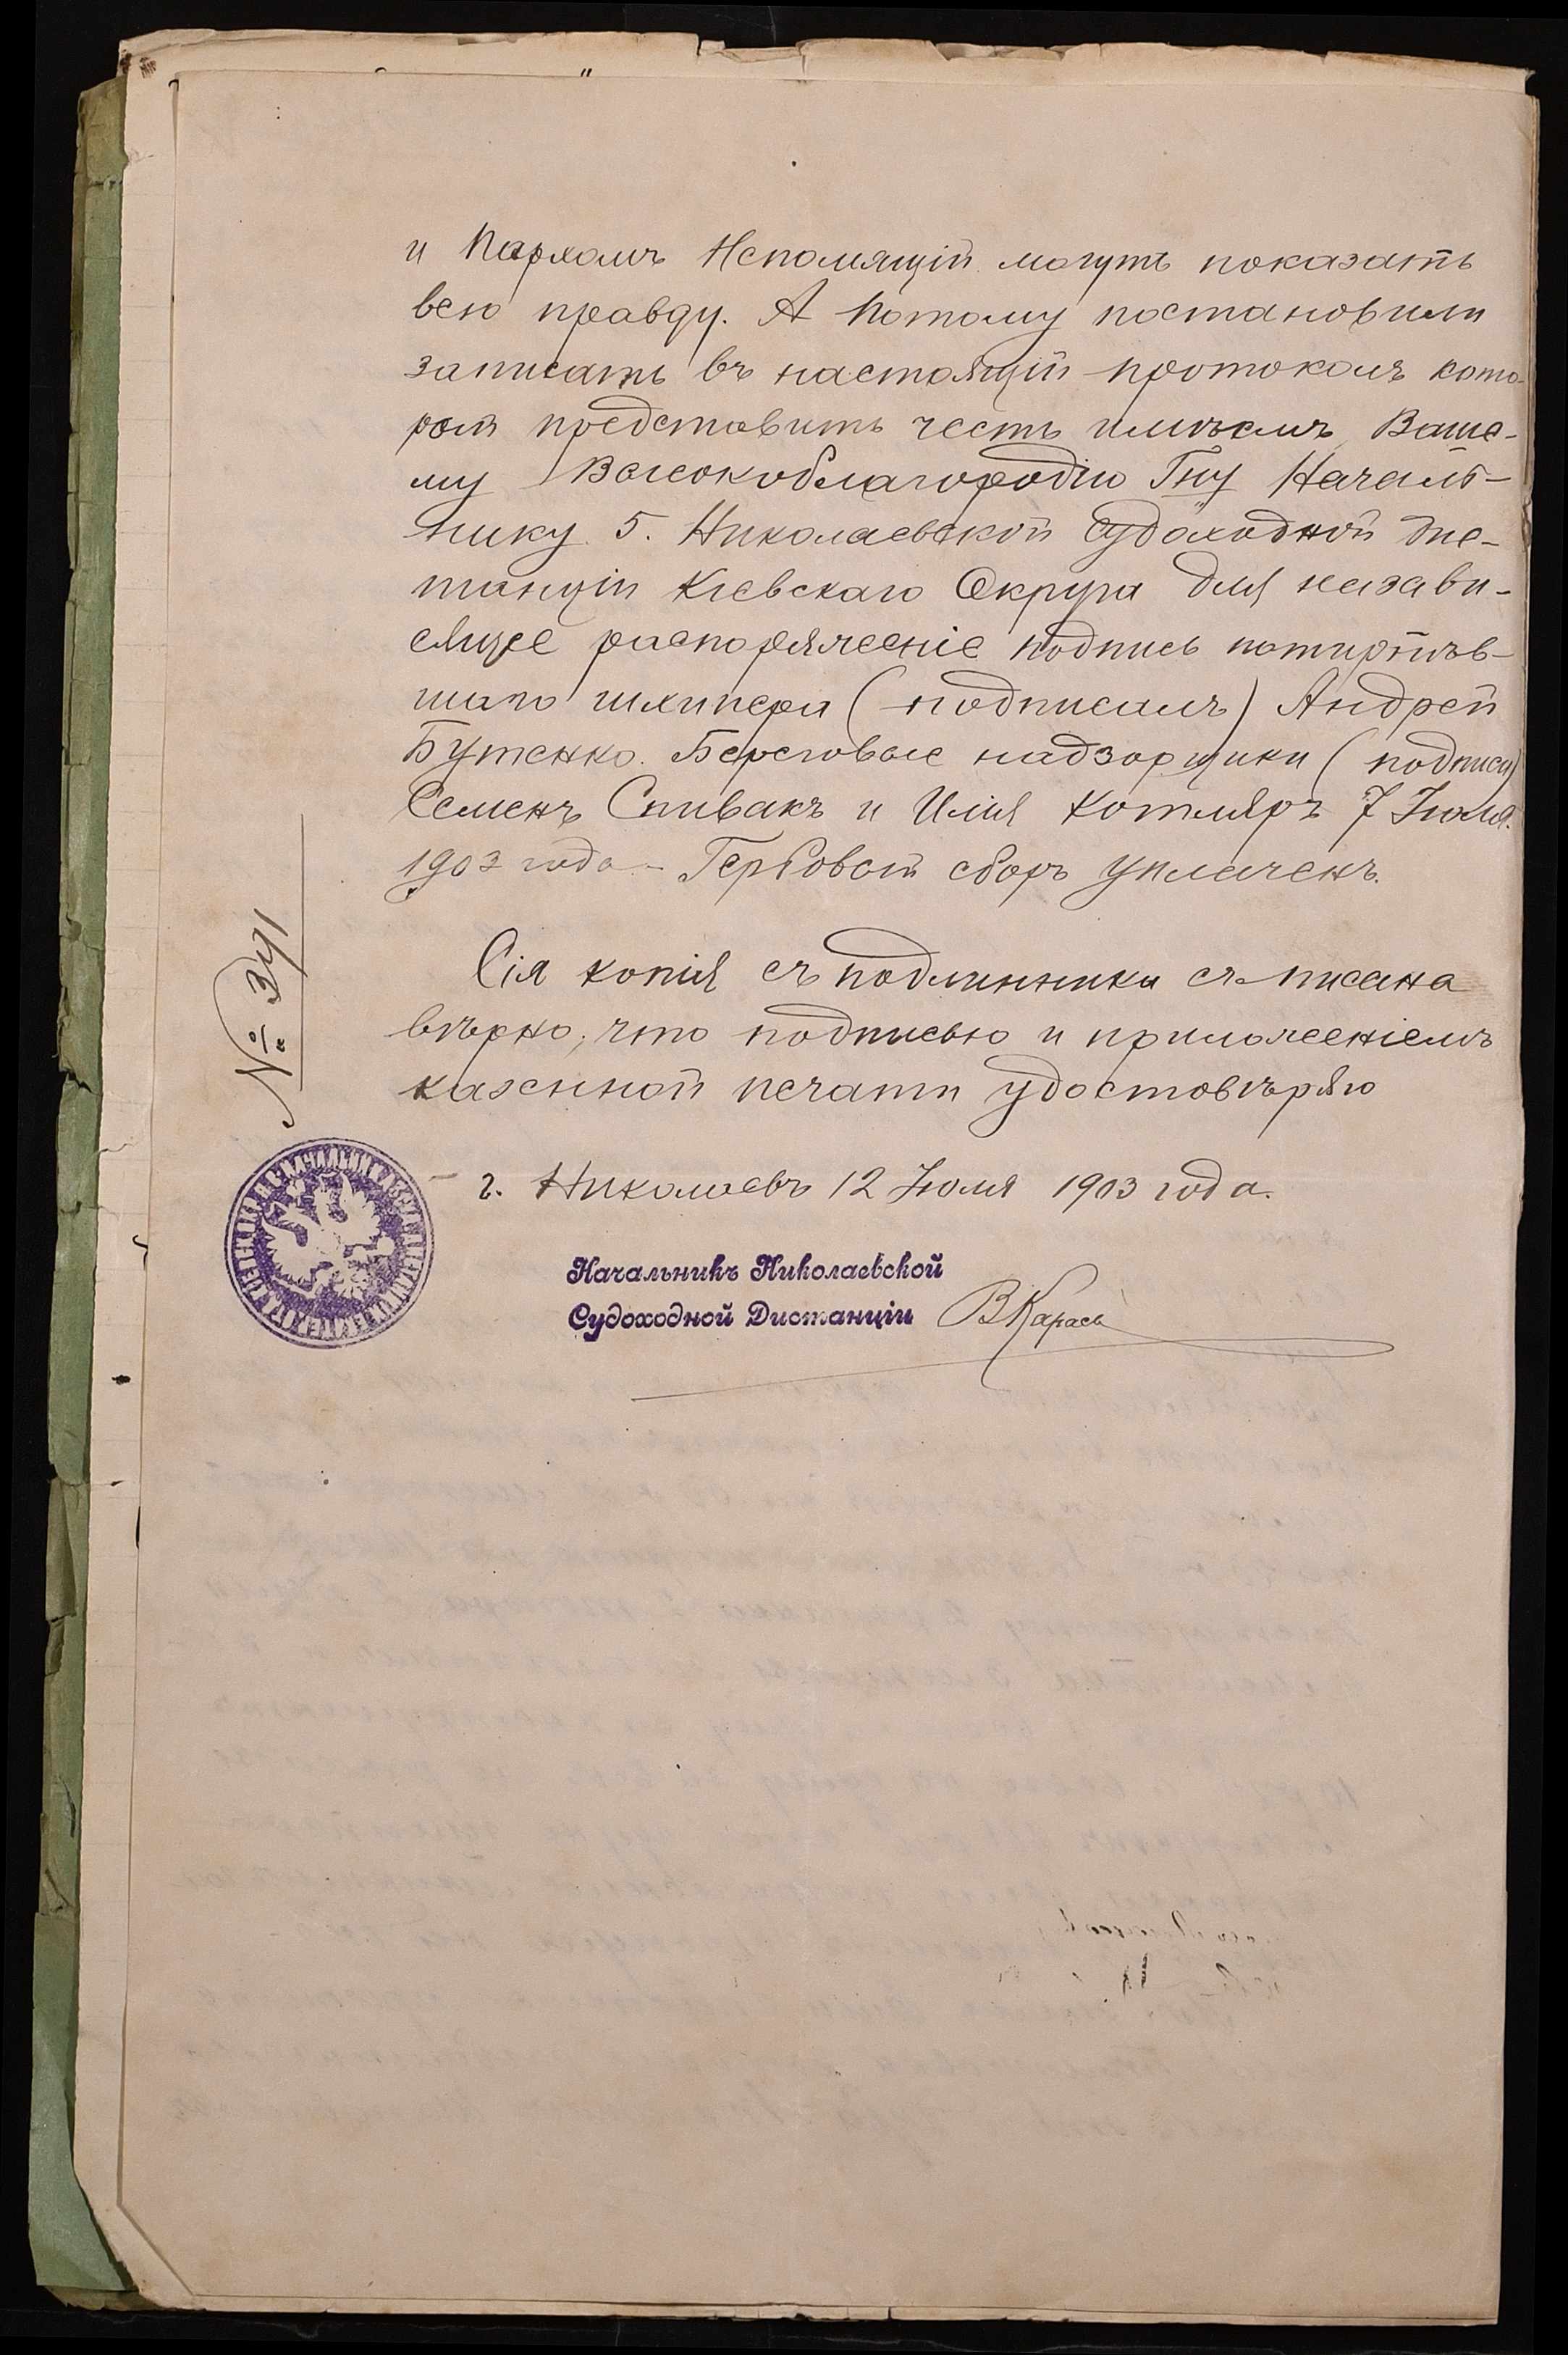 и Пархомъ Непомящій могутъ показать
всю правду. А потому постановили
записать въ настоящій протоколъ кото-
рый представить честь имѣемъ Ваше-
му Высокоблагородію Гну Началь-
нику 5. Николаевской Судоходной Дис-
танціи Кіевскаго Округа для незави-
сящее распоряженіе подпись потерпѣв-
шаго шкипера (подписалъ) Андрей
Бутенко. Береговые надзорщики (подписи)
Семенъ Спивакъ и Илія Котляръ 7 Іюля.
1903 года – Гербовый сборъ уплаченъ.
Сія копія съ подлинника съписана
вѣрно, что подписью и приложеніемъ
казенной печати удостовѣряю
№ 341
г. Николаевъ 12 Іюля 1903 года.
Начальникъ Николаевской
Судоходной Дистанціи ВКарась